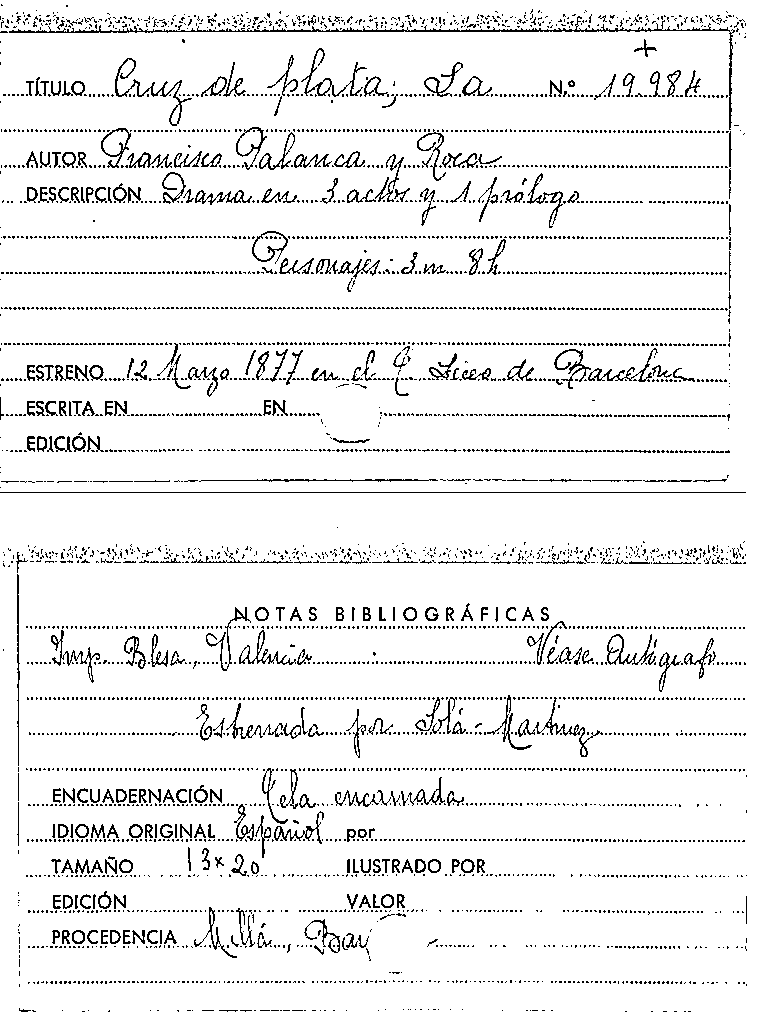 +
TÍTULO Cruz de plata; La N.º 19.984
AUTOR Francisco Palanca y Roca
DESCRIPCIÓN Drama en 3 actos y 1 prólogo
Personajes: 3 m 8 h
ESTRENO 12 Marzo 1877 en el T. Liceo de Barcelona
ESCRITA EN EN
EDICIÓN
NOTAS BIBLIOGRÁFICAS
Imp. Blesa, Valencia Véase Autógrafo
Estrenada por Solá-Martinez
ENCUADERNACIÓN Tela encarnada
IDIOMA ORIGINAL Español por
TAMAÑO 13 x 20 ILUSTRADO POR
EDICIÓN VALOR
PROCEDENCIA Millá,